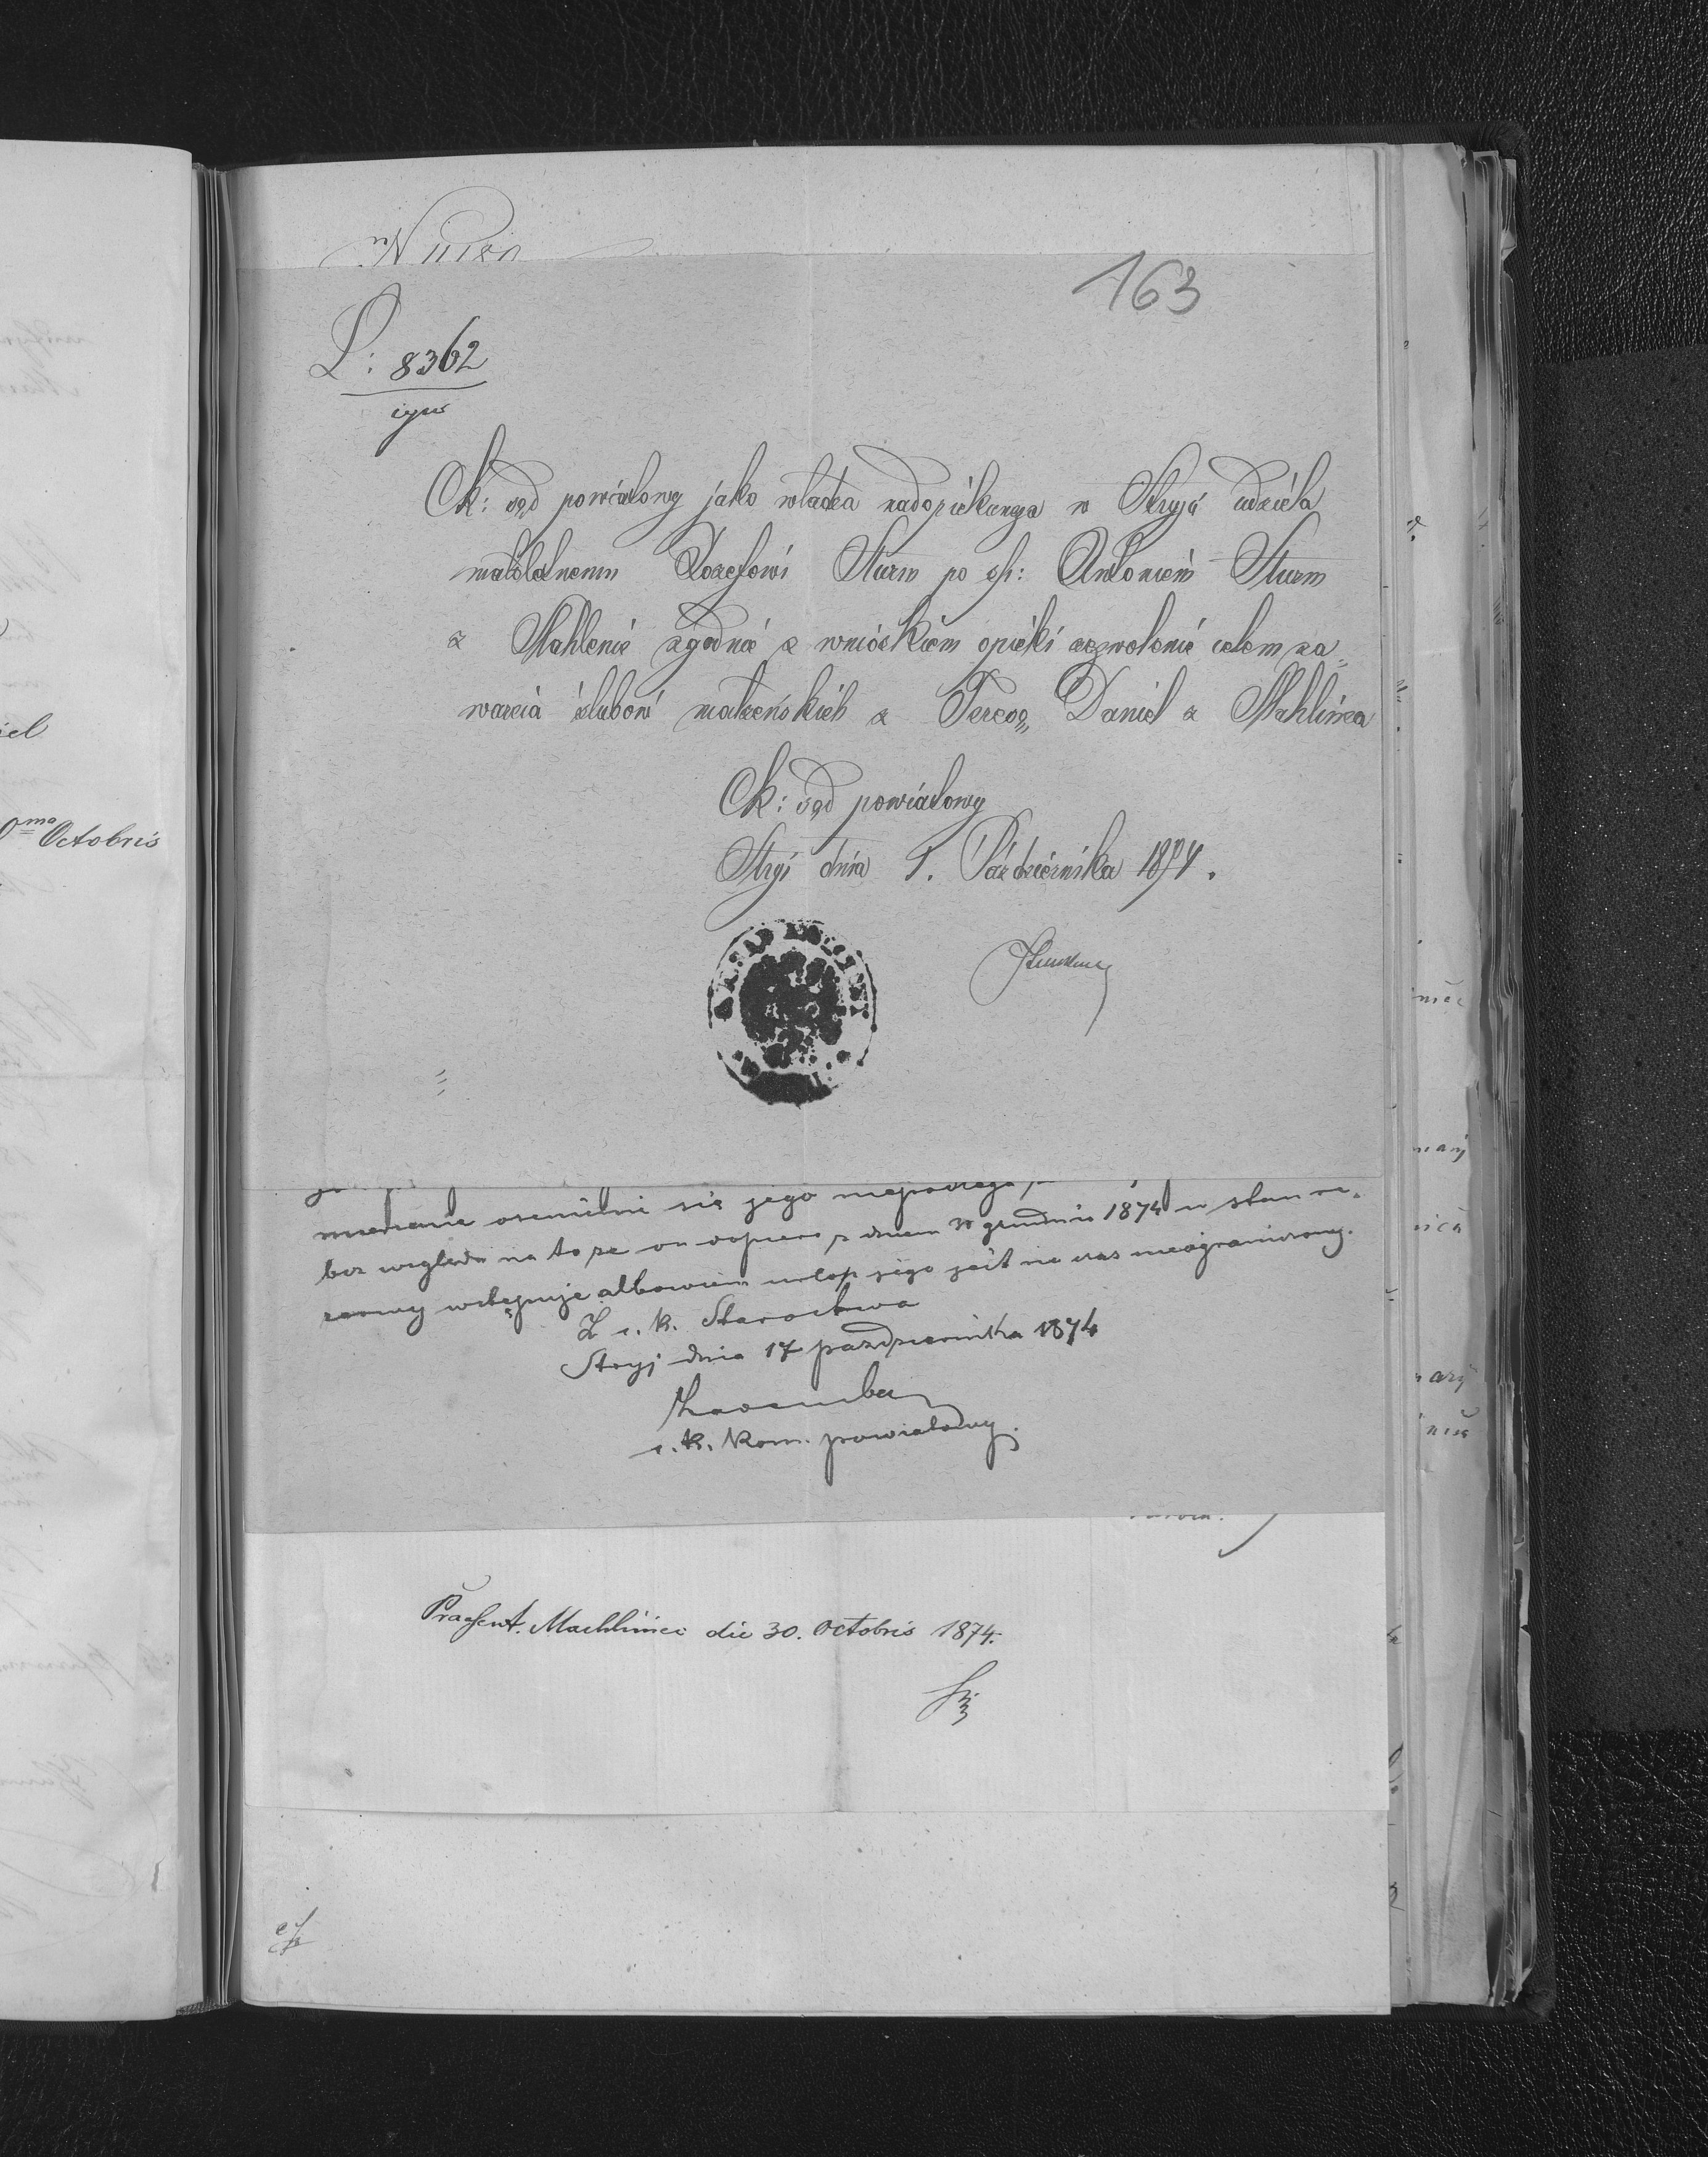 163
L: 8362
cyw
Ck: sąd powiatowy jako władza nadopiekuncza w Stryju udziela
małoletnemu Józefowi Sturm po śp: Antonim Sturm
z Mahlenic zgodnie z wnioskiem opieki zezwolenie celem za„
warcia ślubów małżeńskich z Teresą„ Daniel z Mahlińca
Ck: sąd powiatowy
Stryj dnia 1. Październíka 1874.
się jego
bez względu na to że on dopiero z dniem grudnia 1874 w stan re„
zerwy wstępuje albowiem urlop jego jest na czas nieograniczony.
Z c. k. Starostwa
Stryj dnia 17 października 1874
c. k. Kom. powiatowy.
Praesent. Machliniec die 30. Octobris 1874.
iel
Octobris